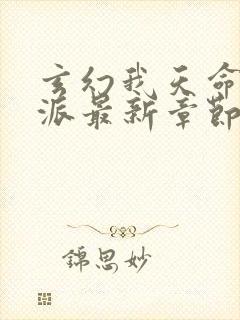 玄幻我天命
派最新章節
錦思妙